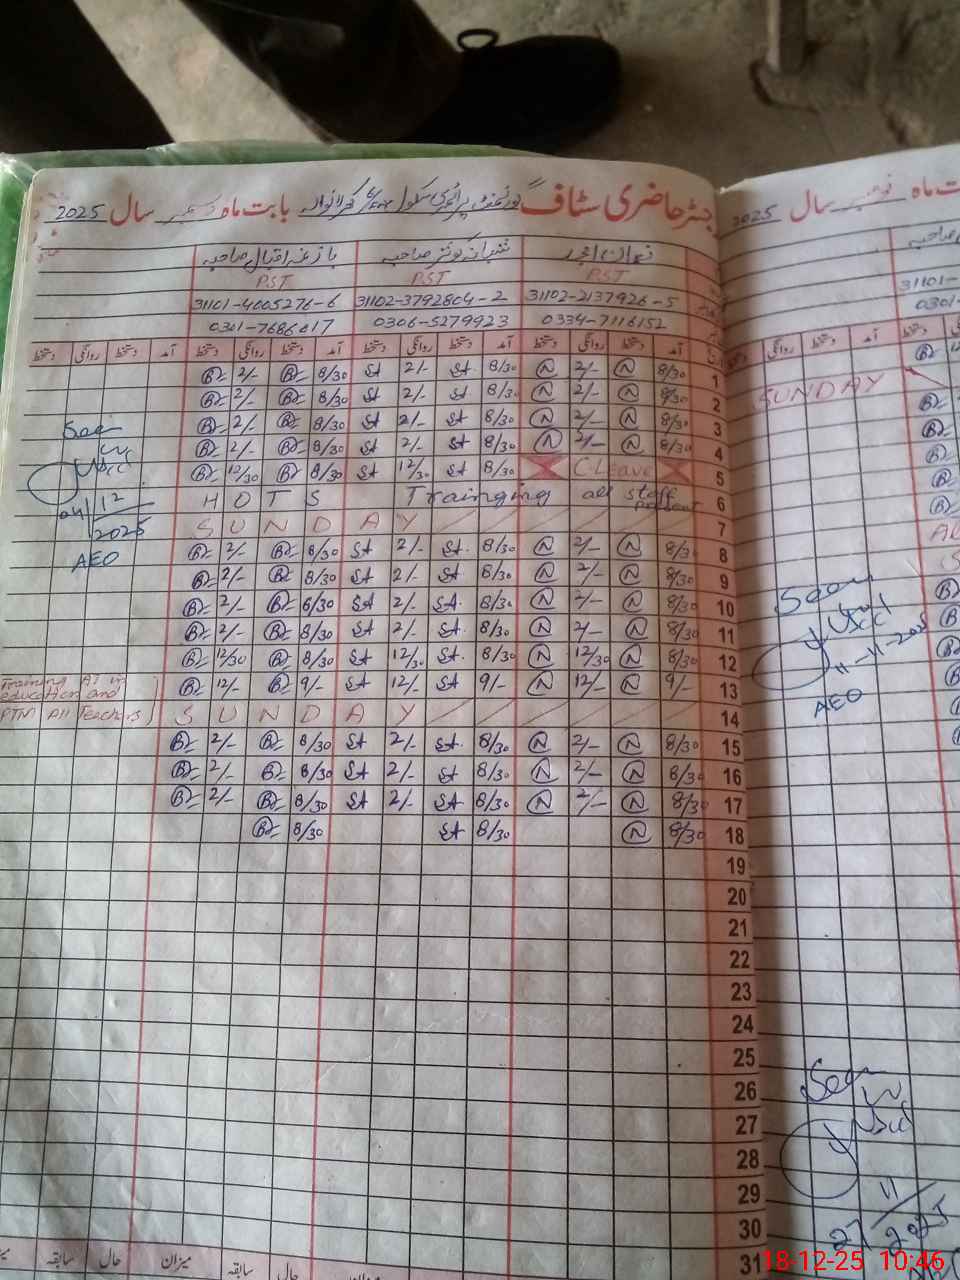 رجسٹر حاضری سٹاف گورنمنٹ پرائمری سکول بابت ماہ دسمبر سال 2025
نعمان امجد شبانہ کوثر صاحبہ بازغہ اقبال صاحبہ
PST PST PST
31102-2137926-5 31102-3792804-2 31101-4005276-6
0334-7116152 0306-5279923 0301-7686017
آمد دستخط روانگی دستخط آمد دستخط روانگی دستخط آمد دستخط روانگی دستخط آمد دستخط روانگی دستخط
1 8/30 N 2/- N 8/30 SA 2/- SA 8/30 B 2/- B
2 8/30 N 2/- N 8/30 SA 2/- SA 8/30 B 2/- B
3 8/30 N 2/- N 8/30 SA 2/- SA 8/30 B 2/- B
4 8/30 N 2/- N 8/30 SA 2/- SA 8/30 B 2/- B
5 C.Leave 8/30 SA 12/30 SA 8/30 B 12/30 B
6 HOTS Trainging all staff present
7 SUNDAY
8 8/30 N 2/- N 8/30 SA 2/- SA 8/30 B 2/- B
9 8/30 N 2/- N 8/30 SA 2/- SA 8/30 B 2/- B
10 8/30 N 2/- N 8/30 SA 2/- SA 8/30 B 2/- B
11 8/30 N 2/- N 8/30 SA 2/- SA 8/30 B 2/- B
12 8/30 N 12/30 N 8/30 SA 12/30 SA 8/30 B 12/30 B
13 9/- N 12/- N 9/- SA 12/- SA 9/- B 12/- B
14 SUNDAY
15 8/30 N 2/- N 8/30 SA 2/- SA 8/30 B 2/- B
16 8/30 N 2/- N 8/30 SA 2/- SA 8/30 B 2/- B
17 8/30 N 2/- N 8/30 SA 2/- SA 8/30 B 2/- B
18 8/30 N 8/30 SA 8/30 B
19
20
21
22
23
24
25
26
27
28
29
30
31
Seen
04/12
2025
AEO
Training AI in
education and
PTM All Teachers
میزان حال سابقہ میزان حال سابقہ
ماہ نومبر سال 2025
31101-
0301-
آمد دستخط روانگی دستخط
SUNDAY
Seen
11-11-2025
AEO
Seen
27/11
2025
18-12-25 10:46